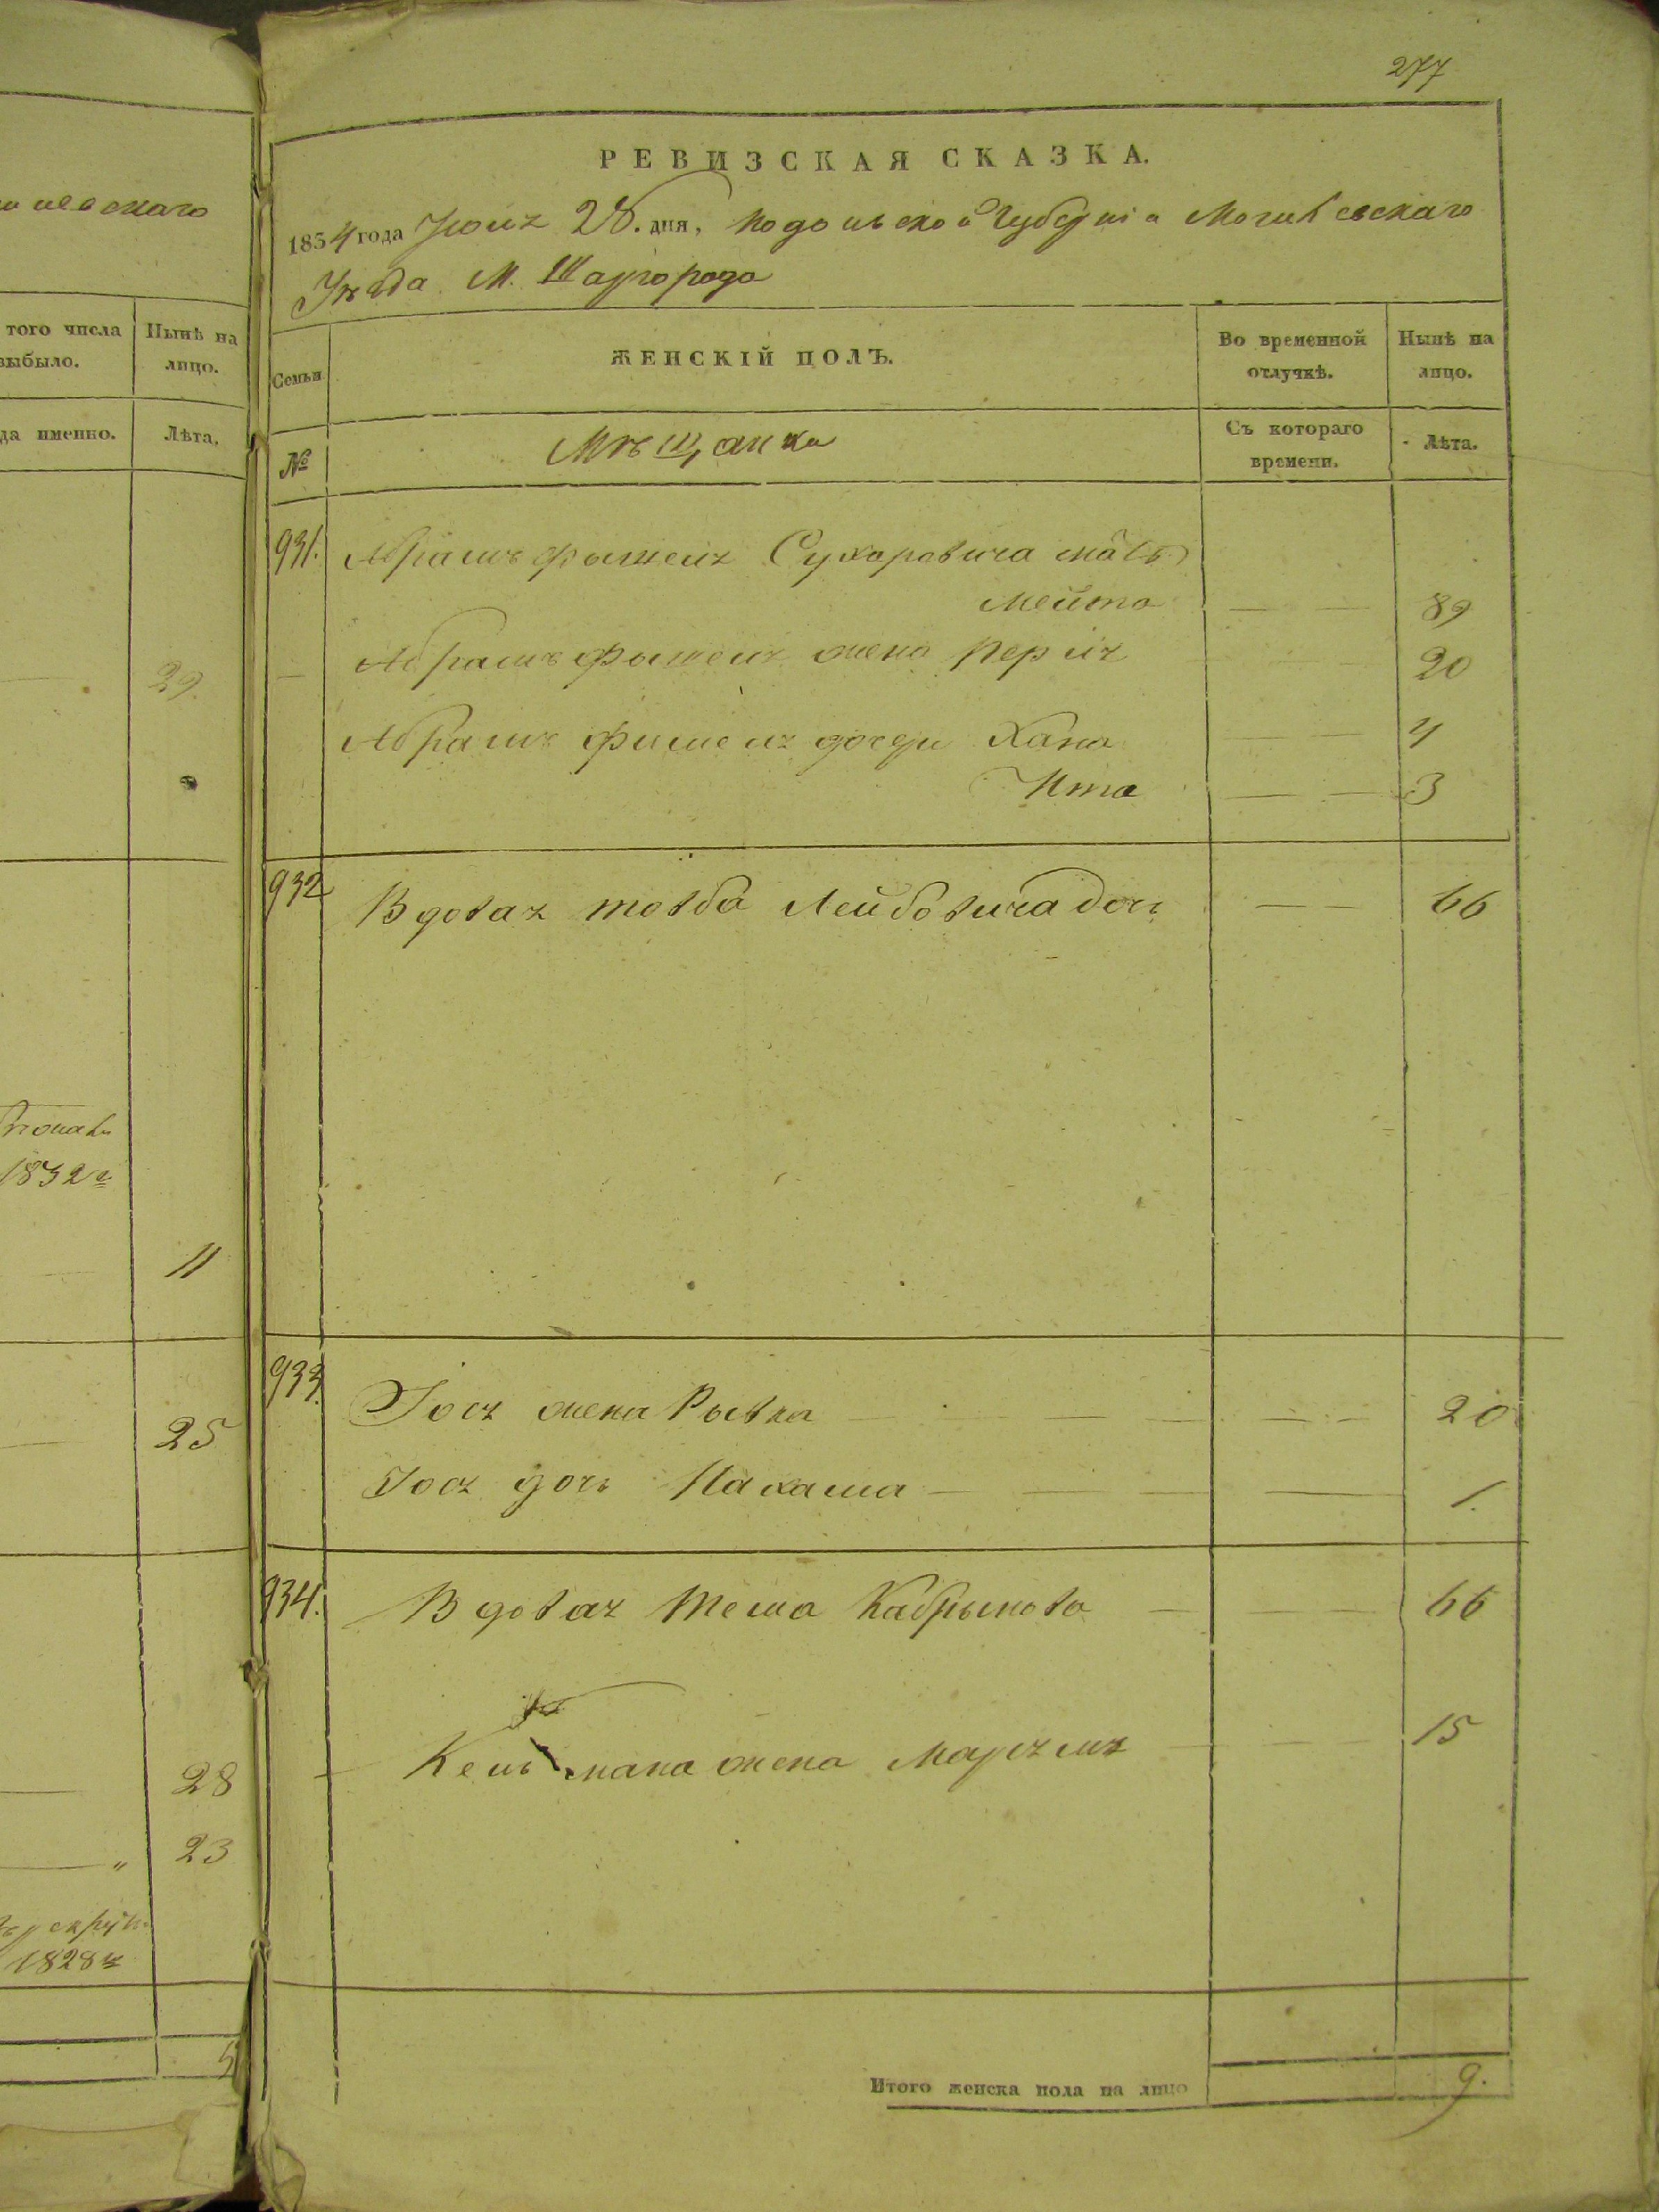 277
невскаго
того числа
выбыло.
Нынѣ на
лицо.
да именно.
Лѣта.
29.
1832 г
11
25
28
23
1828
РЕВИЗСКАЯ СКАЗКА.
1854 года Іюня 28. дня, Подольской Губерніи Могилевскаго
Уѣзда М. Шаргорода
Семьи
ЖЕНСКІЙ ПОЛЪ.
Во временной
отлучкѣ.
Нынѣ на
лицо.
№
Мѣщанка
Съ котораго
времени.
Лѣта.
931. Абрамъ Фышеля Сухаровича мать
Мейта 89
Абрамъ Фышеля жена Перля 20
Абрамъ Фишеля дочери Хана 4
Ита 3
932 Вдовая Товба Лейбовича дочь 66
933. Іося жена Рывка 20
Іося дочь Нахама 1.
934. Вдовая Тема 66
Кельмана жена 15
Итого женска пола на лицо 9.